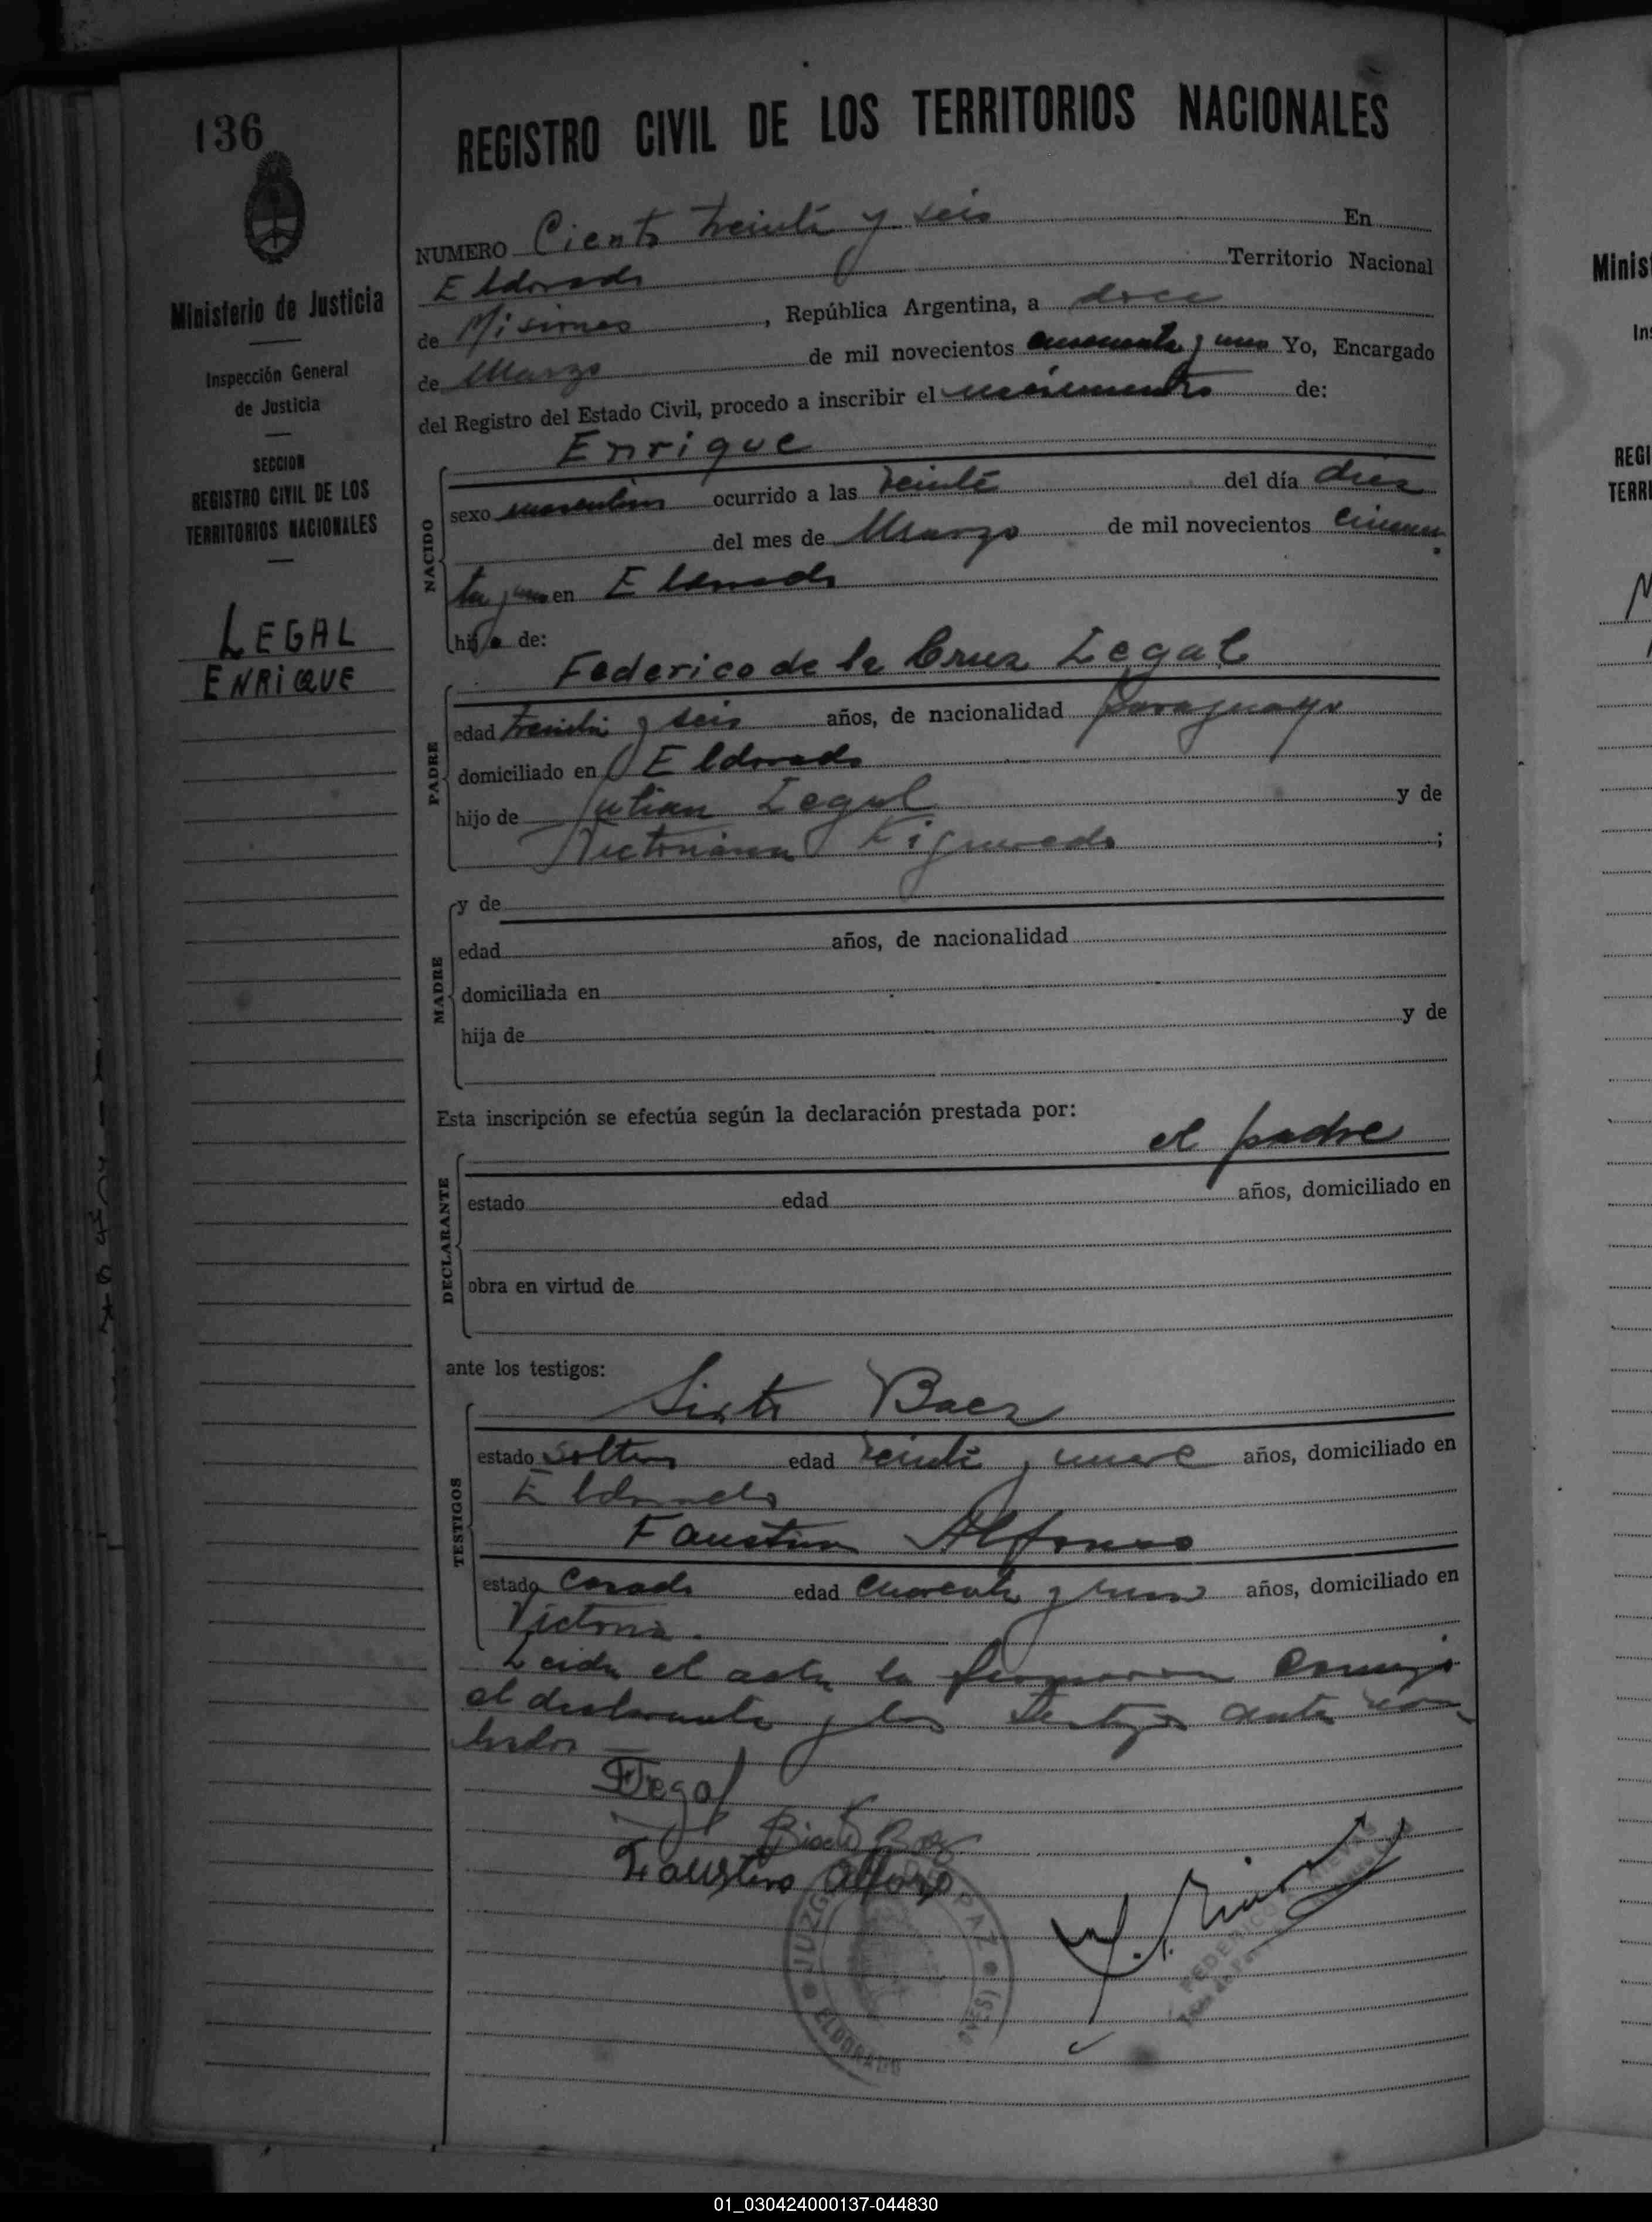 136
REGISTRO CIVIL DE LOS TERRITORIOS NACIONALES
Ministerio de Justicia
Inspección General
de Justicia
SECCION
REGISTRO CIVIL DE LOS
TERRITORIOS NACIONALES
LEGAL
ENRIQUE
NUMERO Ciento treinta y seis En
Eldorado Territorio Nacional
de Misiones, República Argentina, a doce
de Marzo de mil novecientos cincuenta y uno Yo, Encargado
del Registro del Estado Civil, procedo a inscribir el nacimiento de:
Enrique
NACIDO
sexo masculino ocurrido a las veinte del día diez
del mes de Marzo de mil novecientos cincuen
ta y uno en Eldorado
hijo de:
Federico de la Cruz Legal
PADRE
edad treinta y seis años, de nacionalidad paraguayo
domiciliado en Eldorado
hijo de Julian Legal y de
Victoriana Figueredo ;
MADRE
y de
edad años, de nacionalidad
domiciliada en
hija de y de
Esta inscripción se efectúa según la declaración prestada por:
el padre
DECLARANTE
estado edad años, domiciliado en
obra en virtud de
ante los testigos:
Sixto Baez
TESTIGOS
estado soltero edad veinte y nueve años, domiciliado en
Eldorado
Faustino Alfonso
estado casado edad cuarenta y uno años, domiciliado en
Victoria.
Leida el acta la firmaron conmigo
el declarante y los testigos
Legal
Faustino Alfonso
JUZGADO PAZ
ELDORADO
FEDERICO NIEVAS
Minis
In
REGI
TERRI
01_030424000137-044830